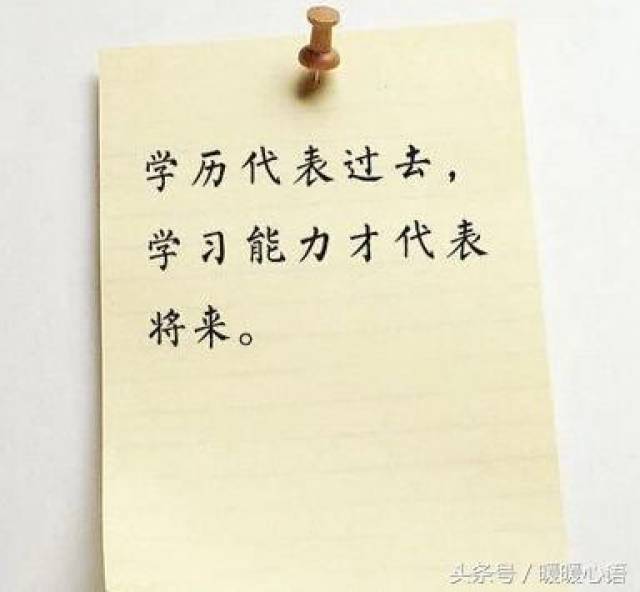 学历代表过去，
学习能力才代表
将来。
头条号/暖暖心语